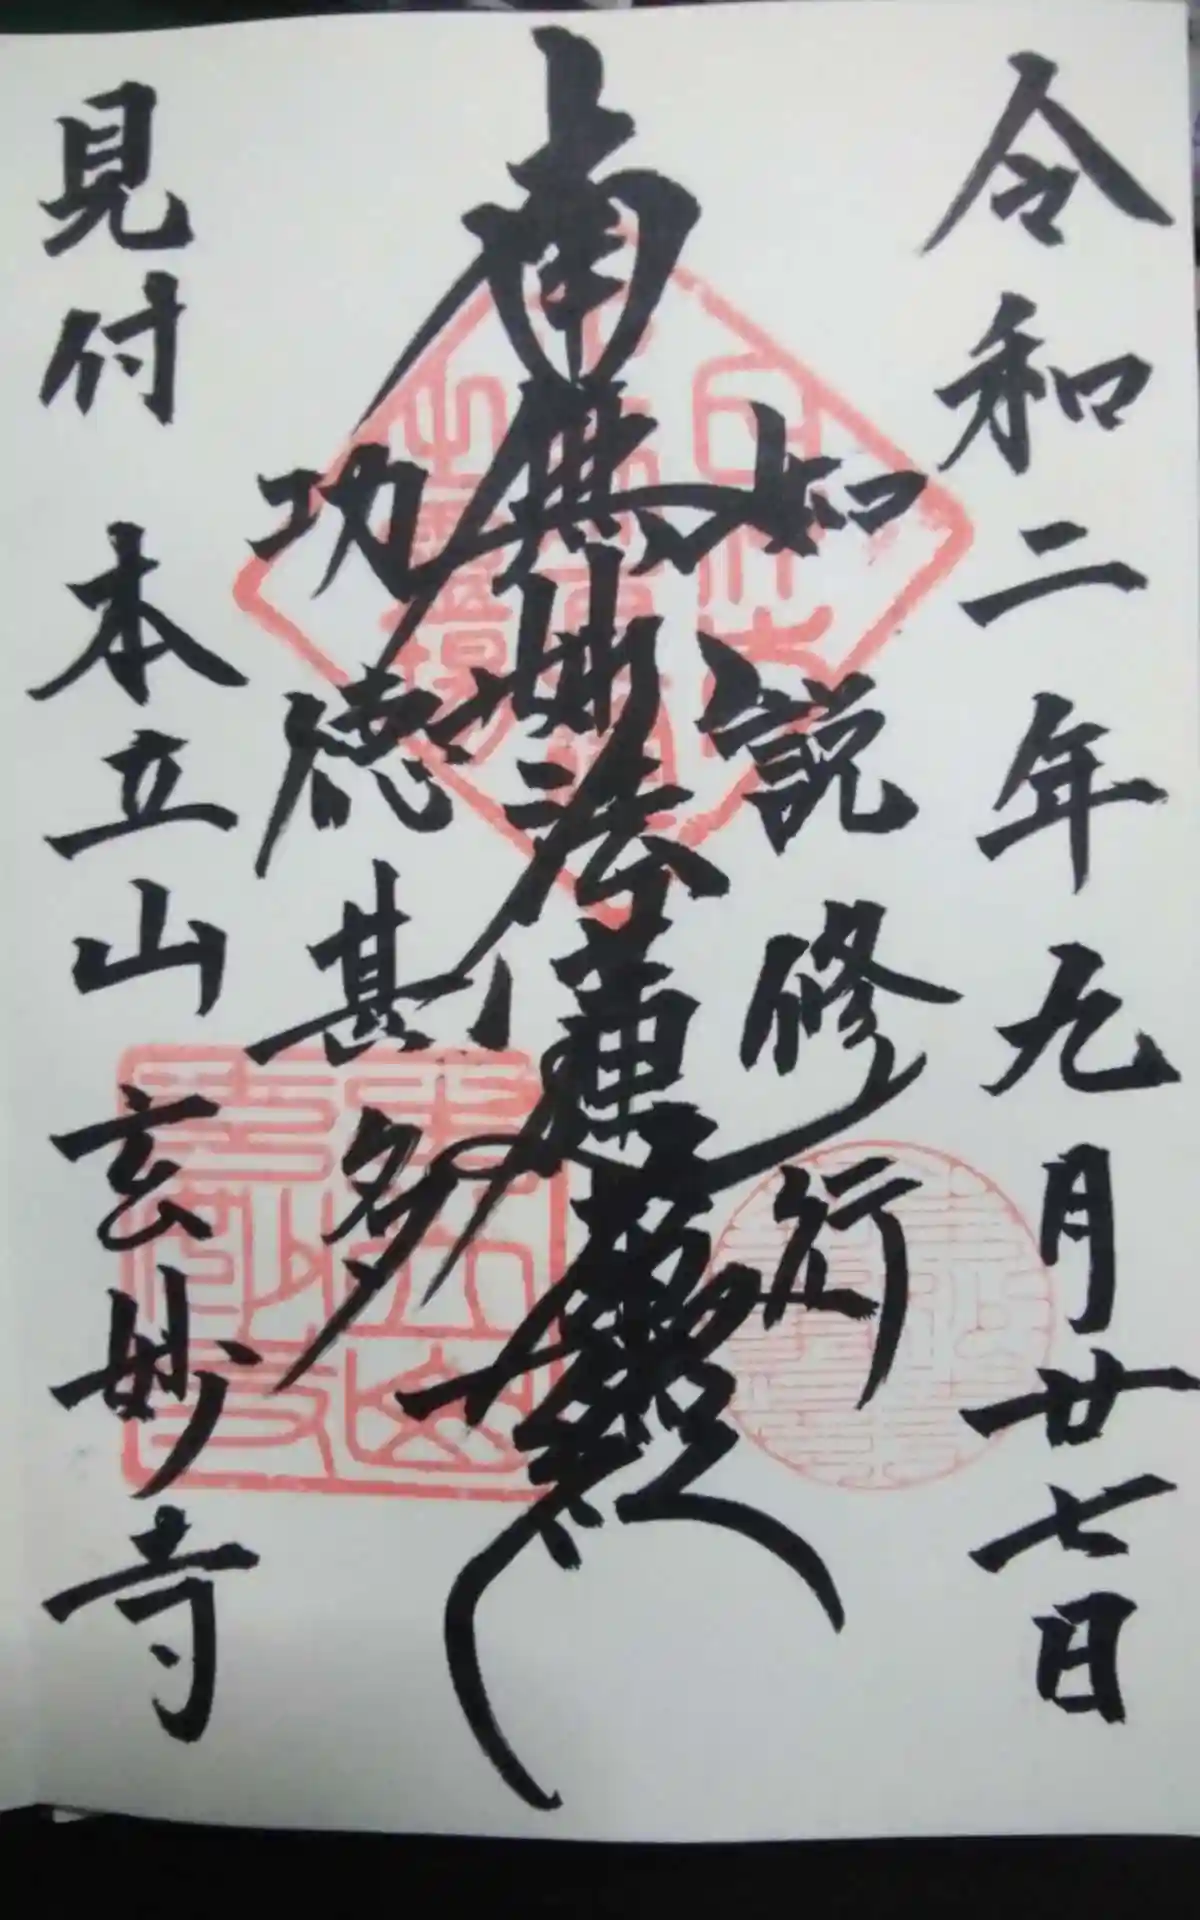 令和二年九月廿七日
如説修行
南無妙法蓮華経
功徳甚多
見付 本立山玄妙寺